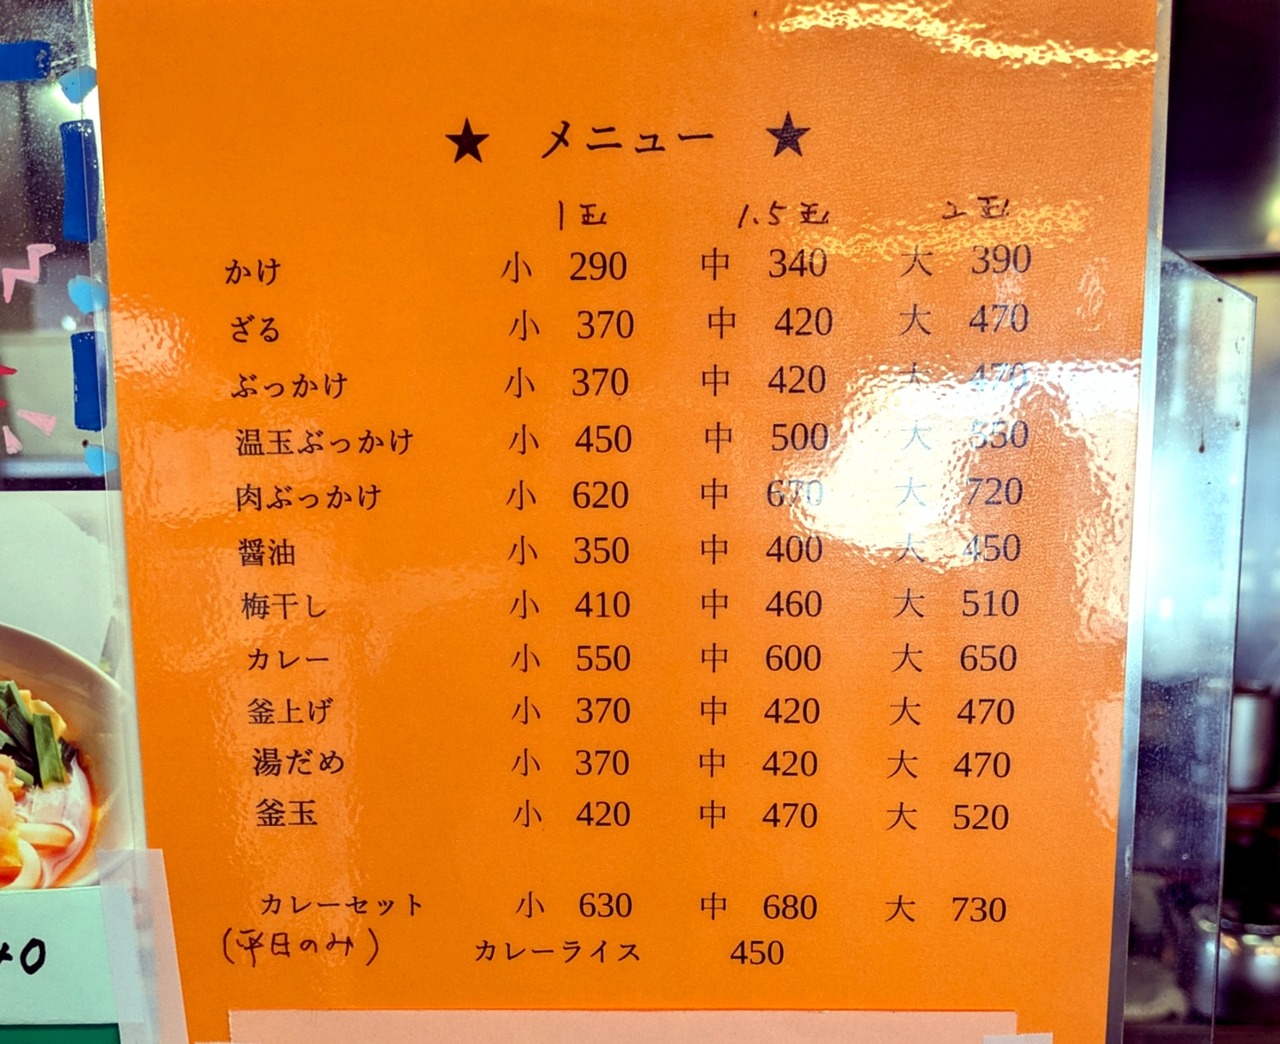 ★ メニュー ★
1玉 1.5玉 2玉
かけ 小 290 中 340 大 390
ざる 小 370 中 420 大 470
ぶっかけ 小 370 中 420 大 470
温玉ぶっかけ 小 450 中 500 大 550
肉ぶっかけ 小 620 中 670 大 720
醤油 小 350 中 400 大 450
梅干し 小 410 中 460 大 510
カレー 小 550 中 600 大 650
釜上げ 小 370 中 420 大 470
湯だめ 小 370 中 420 大 470
釜玉 小 420 中 470 大 520
カレーセット 小 630 中 680 大 730
(平日のみ) カレーライス 450